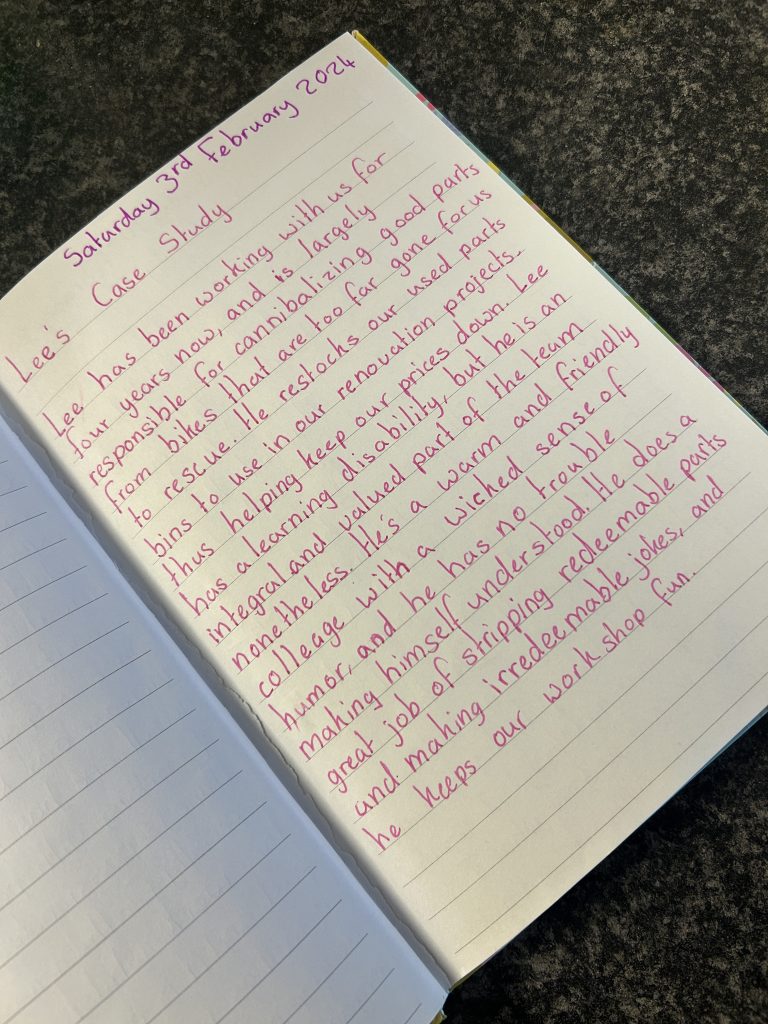 Saturday 3rd February 2024
Lee's Case Study
Lee has been working with us for
four years now, and is largely
responsible for cannibalizing good parts
from bikes that are too far gone for us
to rescue. He restocks our used parts
bins to use in our renovation projects.
thus helping keep our prices down. Lee
has a learning disability, but he is an
integral and valued part of the team
nonetheless. He's a warm and friendly
colleage with a wicked sense of
humor, and he has no trouble
making himself understood. He does a
great job of stripping redeemable parts
and making irredeemable jokes, and
he keeps our workshop fun.